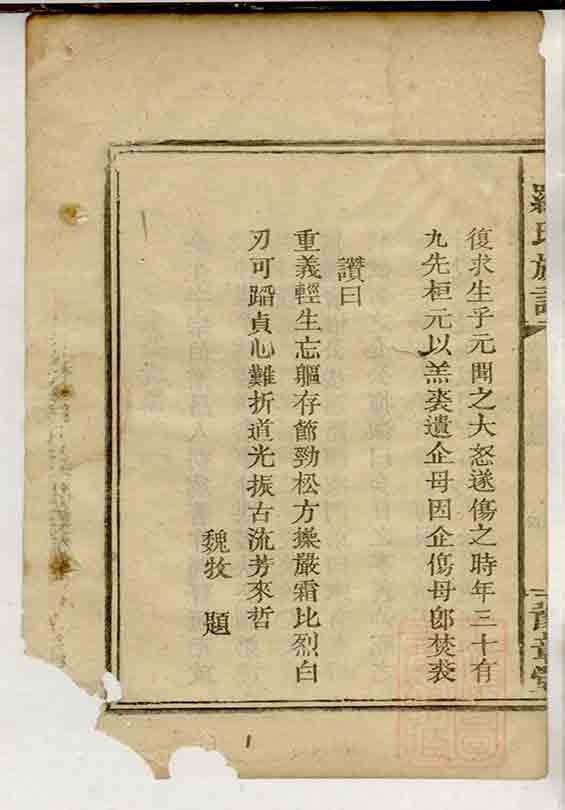 羅氏族譜
復求生乎元聞之大怒遂傷之時年三十有
九先桓元以羔裘遺企母因企傷母卽焚裘
讚曰
重義輕生忘軀存節勁松方操嚴霜比烈白
刃可蹈貞心難折道光振古流芳來哲
魏牧 題
1